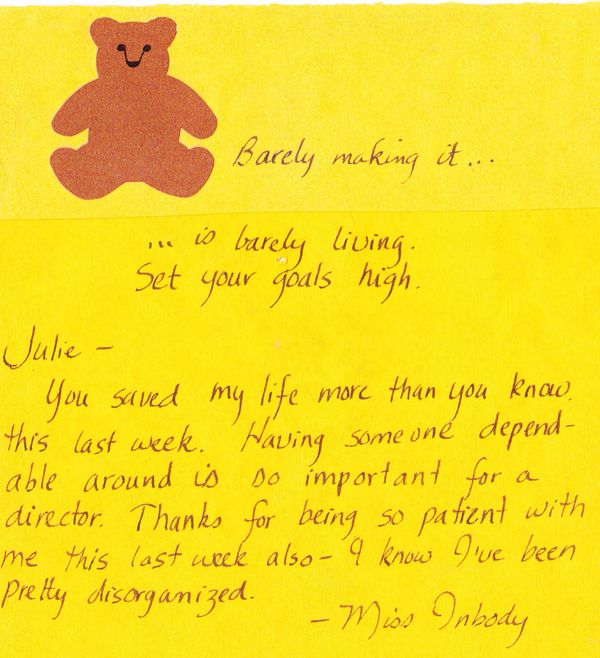 Barely making it...
... is barely living.
Set your goals high.
Julie -
You saved my life more than you know
this last week. Having someone depend-
able around is so important for a
director. Thanks for being so patient with
me this last week also - I know I've been
pretty disorganized.
- Miss Inbody